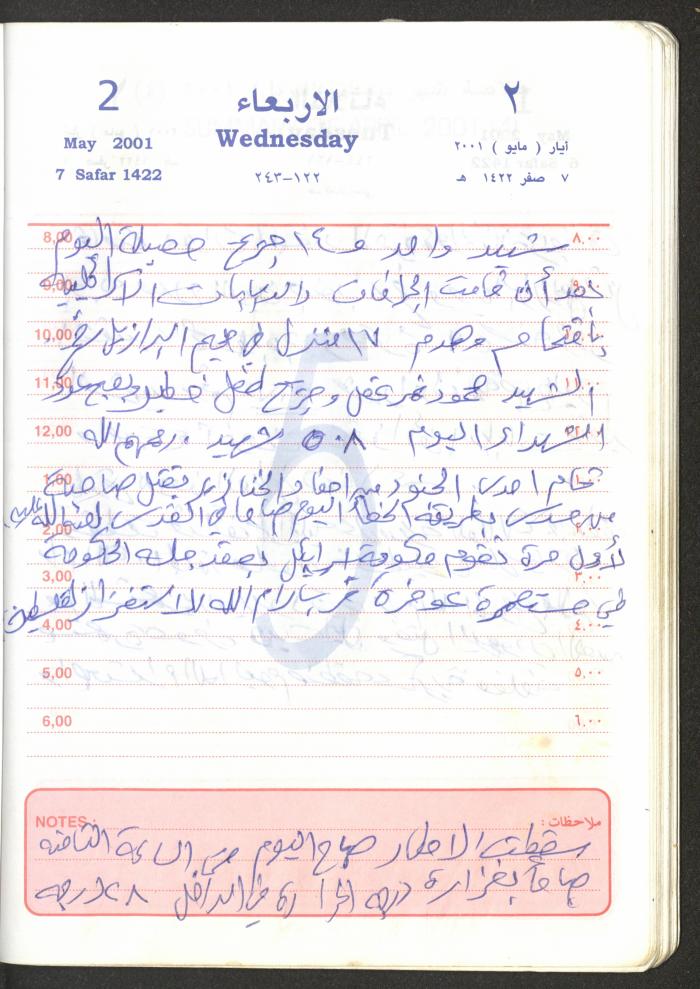 2 الاربعاء ٢
May 2001 Wednesday أيار ( مايو ) ٢٠٠١
7 Safar 1422 ١٢٢-٢٤٣ ٧ صفر ١٤٢٢ هـ
8,00 ٨,٠٠
شهيد واحد و ١٤ جريح حصيلة اليوم
9,00
بعد أن قامت الجرافات والدبابات الاسرائيلية
10,00
باقتحام وهدم ١٧ منزل في مخيم البرازيل
11,00 ١١,٠٠
الشهيد محمود عقل وجرح طفل ويصبح عدد
12,00
الشهداء اليوم ٥٠٨ شهيد . رحمهم الله
1,00
قام احدى الجنود بقتل
2,00
بطريقة الخطأ اليوم صباحا في القدس لعنة الله عليه
لأول مرة تقوم حكومة اسرائيل بعقد جلسة الحكومة
3,00 ٣,٠٠
في مستعمرة عوفرة قرب رام الله للاستفزاز
4,00 ٤,٠٠
5,00 ٥,٠٠
6,00 ٦,٠٠
NOTES : ملاحظات :
سقطت الامطار صباح اليوم الساعة الثامنة
صباحاً بغزارة درجة الحرارة في الداخل درجة